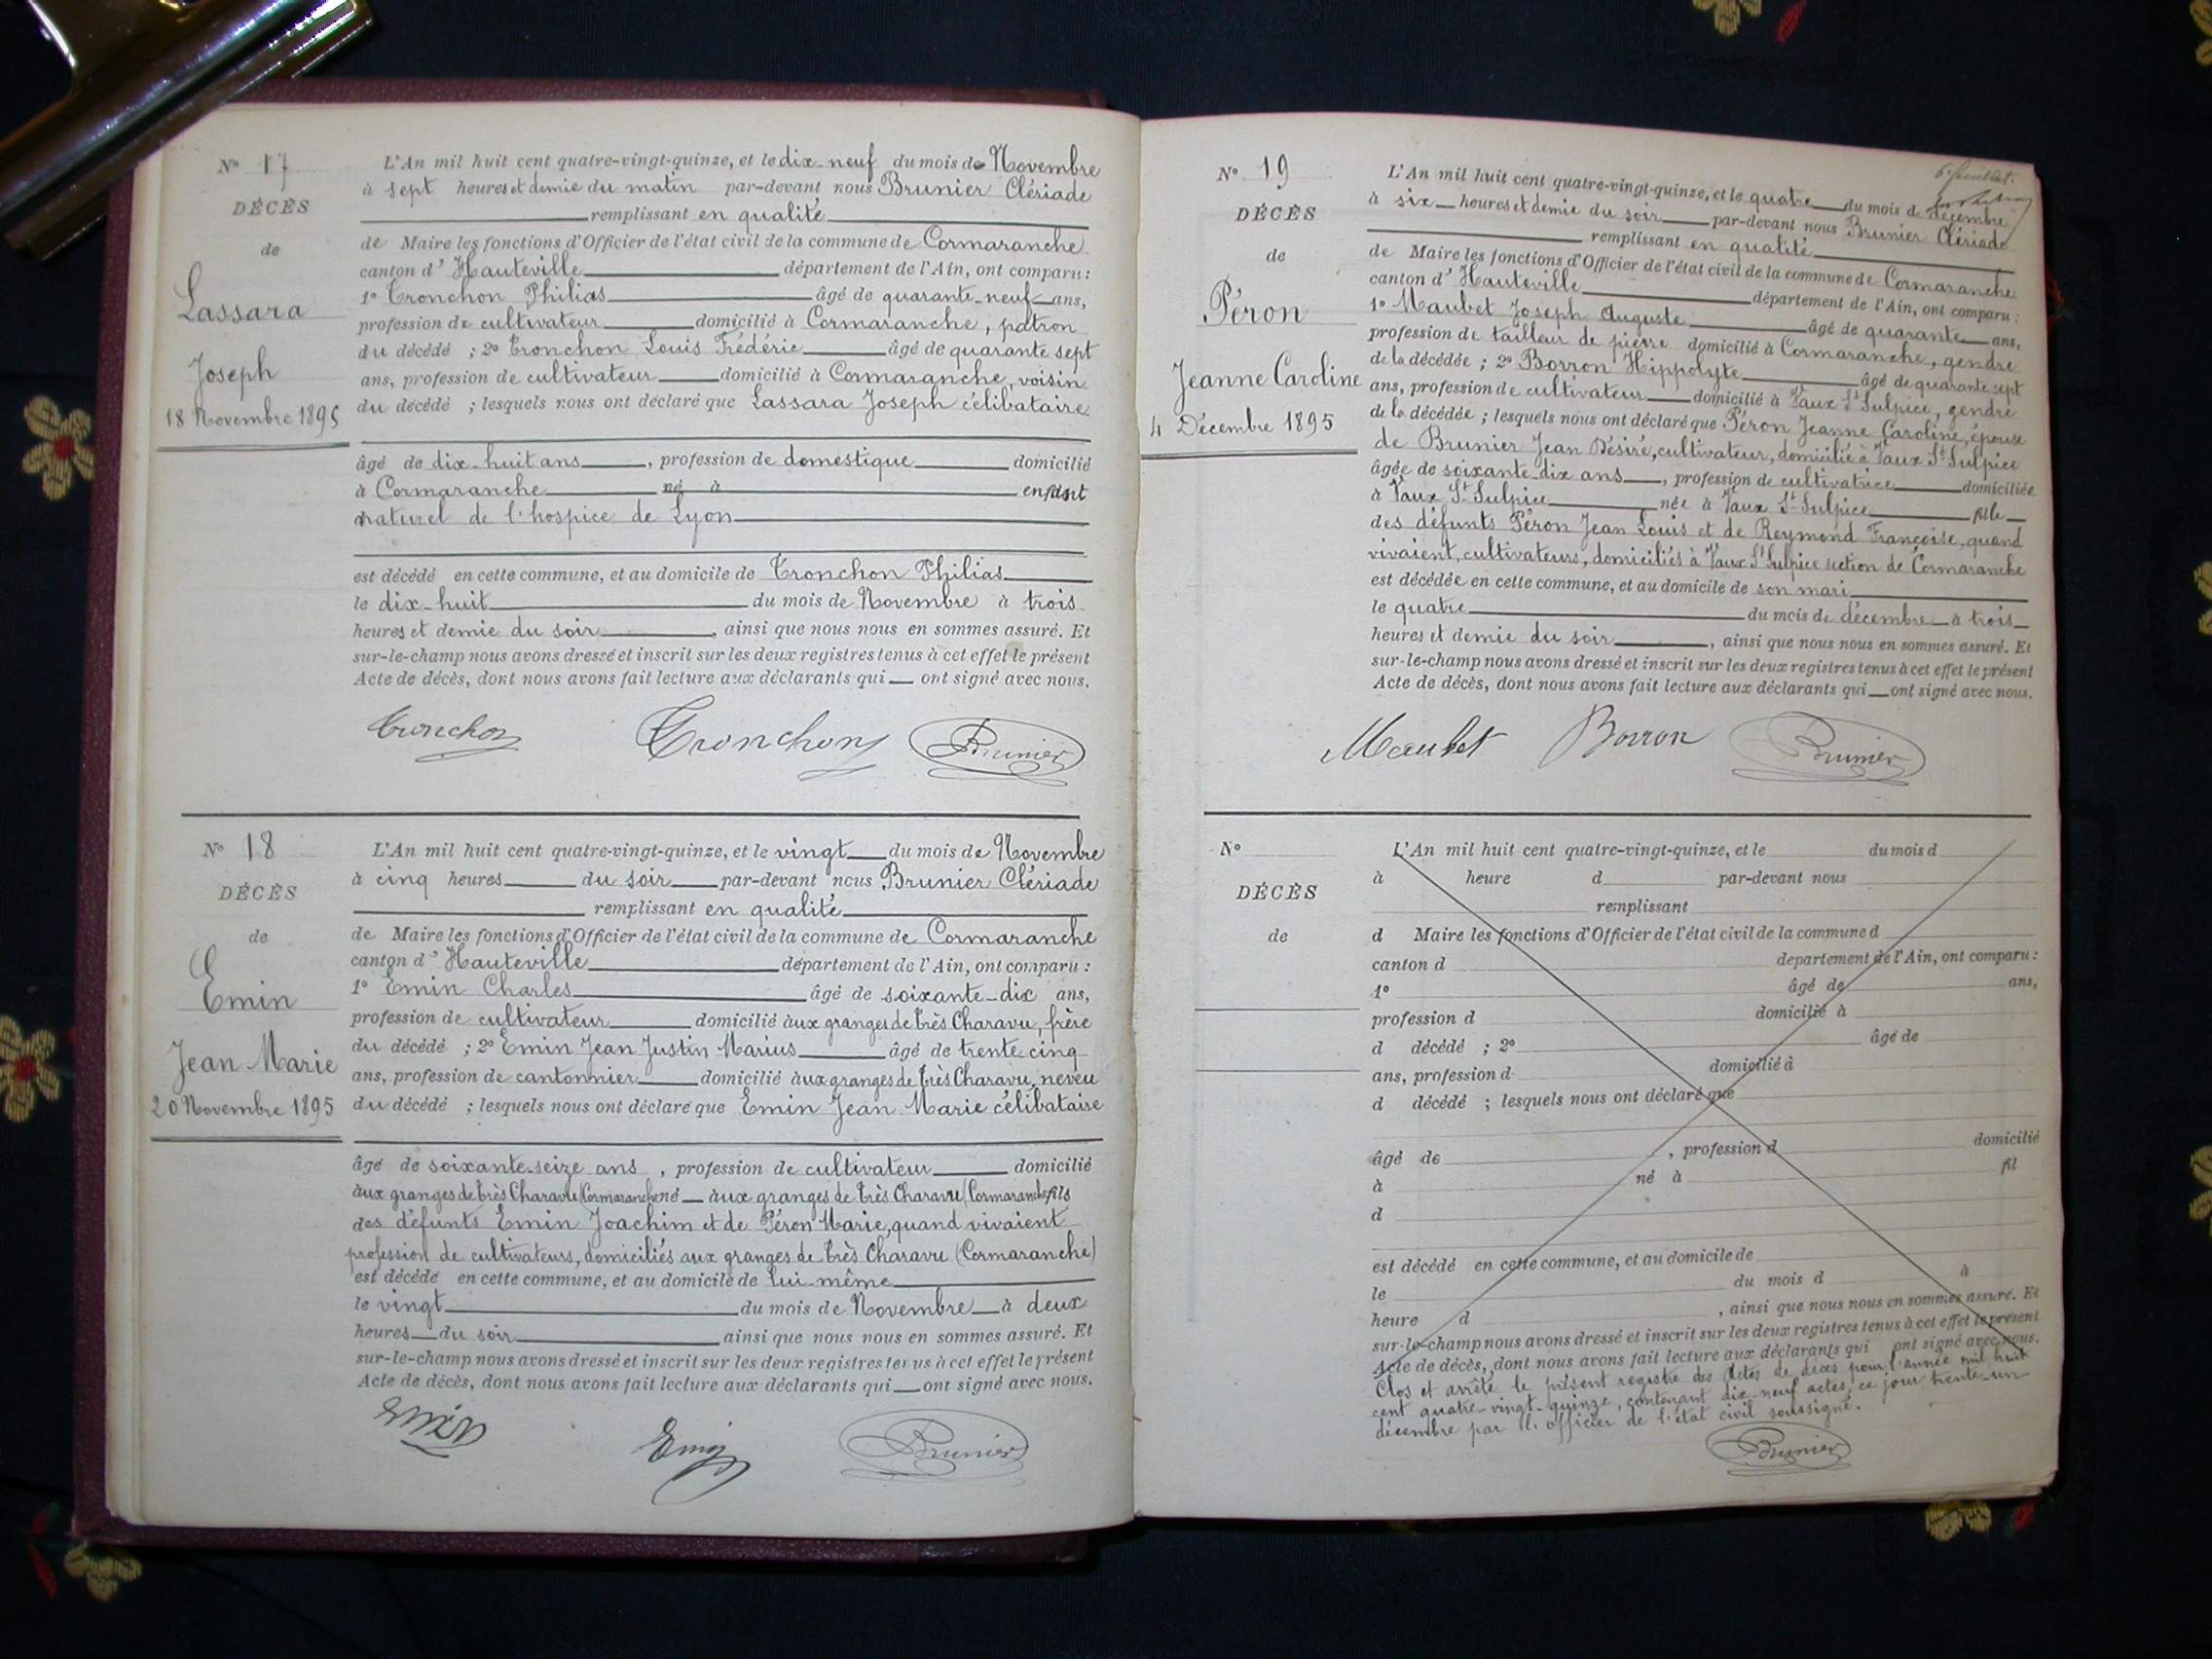 Nº 17
DÉCÈS
de
Lassara
Joseph
18 Novembre 1895
L'An mil huit cent quatre-vingt-quinze, et le dix-neuf du mois de Novembre
à sept heures et demie du matin par-devant nous Brunier Clériade
remplissant en qualité
de Maire les fonctions d'Officier de l'état civil de la commune de Cormaranche
canton d'Hauteville département de l'Ain, ont comparu :
1º Tronchon Philias âgé de quarante-neuf ans,
profession de cultivateur domicilié à Cormaranche, patron
du décédé ; 2º Tronchon Louis Frédéric âgé de quarante sept
ans, profession de cultivateur domicilié à Cormaranche, voisin
du décédé ; lesquels nous ont déclaré que Lassara Joseph célibataire
âgé de dix-huit ans, profession de domestique domicilié
à Cormaranche né à enfant
naturel de l'hospice de Lyon
est décédé en cette commune, et au domicile de Tronchon Philias
le dix-huit du mois de Novembre à trois
heures et demie du soir, ainsi que nous nous en sommes assuré. Et
sur-le-champ nous avons dressé et inscrit sur les deux registres tenus à cet effet le présent
Acte de décès, dont nous avons fait lecture aux déclarants qui ont signé avec nous.
Tronchon Tronchon Brunier
Nº 18
DÉCÈS
de
Emin
Jean Marie
20 Novembre 1895
L'An mil huit cent quatre-vingt-quinze, et le vingt du mois de Novembre
à cinq heures du soir par-devant nous Brunier Clériade
remplissant en qualité
de Maire les fonctions d'Officier de l'état civil de la commune de Cormaranche
canton d'Hauteville département de l'Ain, ont comparu :
1º Emin Charles âgé de soixante-dix ans,
profession de cultivateur domicilié aux granges de très Charavu, frère
du décédé ; 2º Emin Jean Justin Marius âgé de trente cinq
ans, profession de cantonnier domicilié aux granges de très Charavu, neveu
du décédé ; lesquels nous ont déclaré que Emin Jean Marie célibataire
âgé de soixante-seize ans, profession de cultivateur domicilié
aux granges de très Charavu (Cormaranche) né aux granges de très Charavu (Cormaranche) fils
des défunts Emin Joachim et de Péron Marie, quand vivaient
profession de cultivateurs, domiciliés aux granges de très Charavu (Cormaranche)
est décédé en cette commune, et au domicile de lui-même
le vingt du mois de Novembre à deux
heures du soir ainsi que nous nous en sommes assuré. Et
sur-le-champ nous avons dressé et inscrit sur les deux registres tenus à cet effet le présent
Acte de décès, dont nous avons fait lecture aux déclarants qui ont signé avec nous.
Emin Emin Brunier
6e feuillet.
Nº 19
DÉCÈS
de
Péron
Jeanne Caroline
4 Décembre 1895
L'An mil huit cent quatre-vingt-quinze, et le quatre du mois de décembre
à six heures et demie du soir par-devant nous Brunier Clériade
remplissant en qualité
de Maire les fonctions d'Officier de l'état civil de la commune de Cormaranche
canton d'Hauteville département de l'Ain, ont comparu :
1º Maubet Joseph Auguste âgé de quarante ans,
profession de tailleur de pierre domicilié à Cormaranche, gendre
de la décédée ; 2º Borron Hippolyte âgé de quarante sept
ans, profession de cultivateur domicilié à Vaux St Sulpice, gendre
de la décédée ; lesquels nous ont déclaré que Péron Jeanne Caroline, épouse
de Brunier Jean Désiré, cultivateur, domicilié à Vaux St Sulpice
âgée de soixante-dix ans, profession de cultivatrice domiciliée
à Vaux St Sulpice née à Vaux St Sulpice fille
des défunts Péron Jean Louis et de Reymond Françoise, quand
vivaient, cultivateurs, domiciliés à Vaux St Sulpice section de Cormaranche
est décédée en cette commune, et au domicile de son mari
le quatre du mois de décembre à trois
heures et demie du soir, ainsi que nous nous en sommes assuré. Et
sur-le-champ nous avons dressé et inscrit sur les deux registres tenus à cet effet le présent
Acte de décès, dont nous avons fait lecture aux déclarants qui ont signé avec nous.
Maubet Borron Brunier
Nº
DÉCÈS
de
L'An mil huit cent quatre-vingt-quinze, et le du mois d
à heure d par-devant nous
remplissant
d Maire les fonctions d'Officier de l'état civil de la commune d
canton d département de l'Ain, ont comparu :
1º âgé de ans,
profession d domicilié à
d décédé ; 2º âgé de
ans, profession d domicilié à
d décédé ; lesquels nous ont déclaré que
âgé de , profession d domicilié
à né à fil
d
est décédé en cette commune, et au domicile de
le du mois d à
heure d , ainsi que nous nous en sommes assuré. Et
sur-le-champ nous avons dressé et inscrit sur les deux registres tenus à cet effet le présent
Acte de décès, dont nous avons fait lecture aux déclarants qui ont signé avec nous.
Clos et arrêté le présent registre des Actes de décès pour l'année mil huit
cent quatre-vingt-quinze, contenant dix-neuf actes, ce jour trente-un
décembre par l'officier de l'état civil soussigné.
Brunier